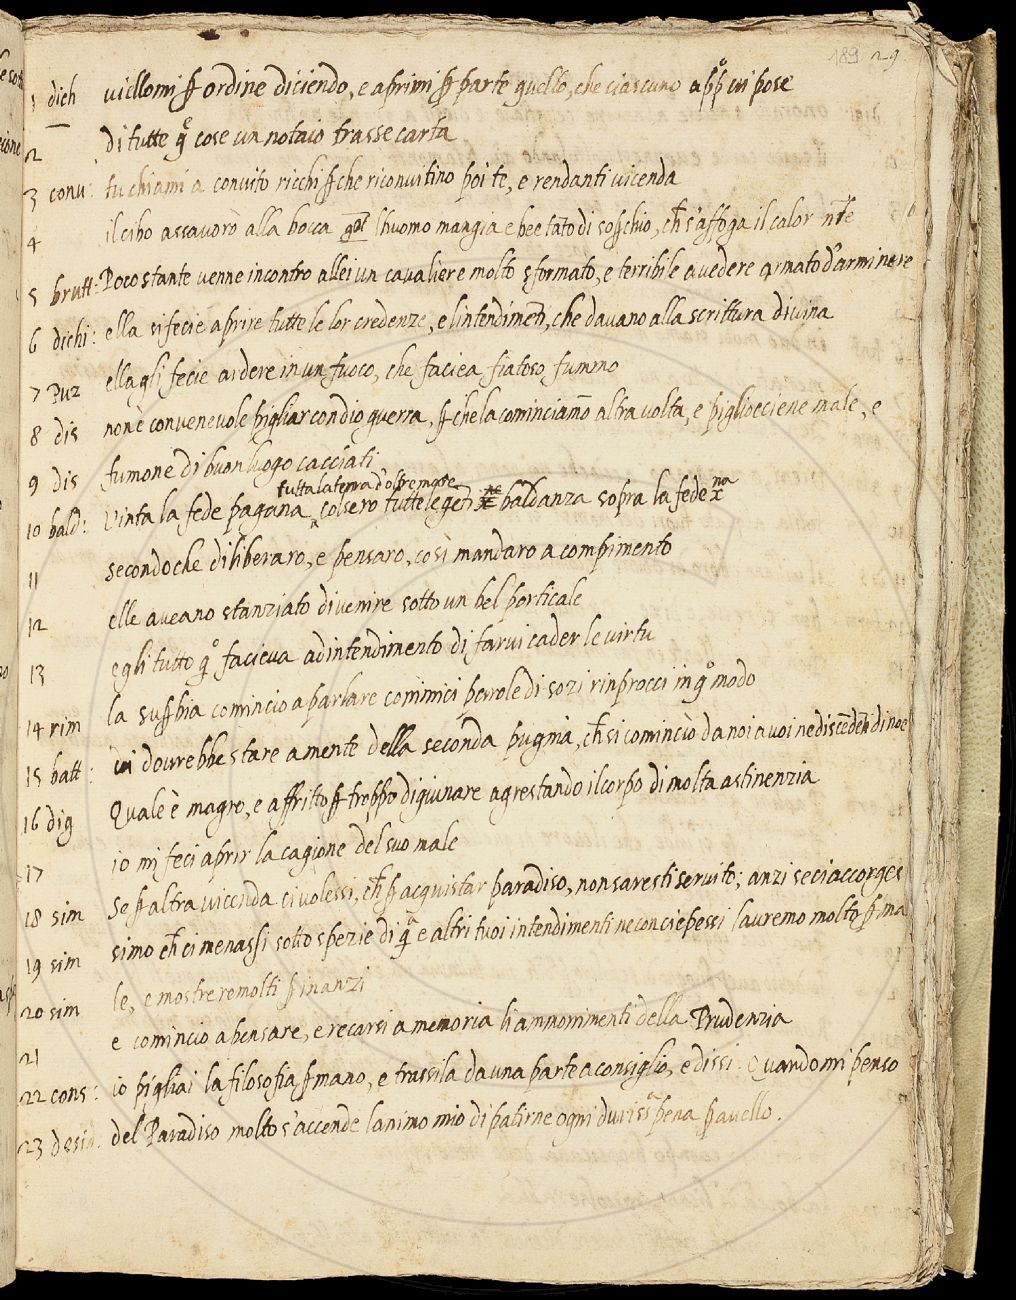 189 29
1 dich viellomi ꝑ ordine diciendo, e aprimi ꝑ parte quello, che ciascuno app.o vi pose
2 di tutte q.e cose un notaio trasse carta
3 conu: tu chiami a convito ricchi ꝑche riconvitino poi te, e rendanti vicenda
4 il cibo assavorò alla bocca lhuomo mangia e bee tāto di soꝑchio, ch̄ s'affoga il calor
5 brutt: Poco stante venne incontro allei un cavaliere molto sformato, e terribile a vedere armato d'armi nere
6 dichi: ella si fecie aprire tutte le lor credenze, e lintendimēti, che davano alla scrittura divina
7 puz ella gli fecie ardere in un fuoco, che faciea fiatoso fummo
8 dis non è convenevole pigliar con dio guerra, ꝑche la cominciamo altra volta, e piglioeciene male, e
9 dis fumone di buon luogo cacciati
tutta la terra d'oltremare
10 bald: Vinta la fede pagana colsero tutte le gēti baldanza sopra la fede x.na
11 secondo che diliberaro, e pensaro, così mandaro a compimento
12 elle aveano stanziato di venire sotto un bel porticale
13 egli tutto q.o facieva ad intendimento di farvi cader le virtu
14 rim la suꝑbia comincio a parlare cominici parole di sozi rinprocci in q.o modo
15 batt: vi dovrebbe stare a mente della seconda pugnia, ch̄ si cominciò da noi a voi ne discēdēti di noe
16 dig Quale è magro, e affritto ꝑ troppo digiunare agrestando il corpo di molta astinenzia
17 io mi feci aprir la cagione del suo male
18 sim Se ꝑ altra vicenda ci volessi, ch̄ ꝑ acquistar paradiso, non saresti servito; anzi se ci accorges
19 sim simo ch̄ ci menassi sotto spezie di q.a e altri tuoi intendimenti ne conciepessi lauremo molto ꝑ ma
20 sim le, e mostreremolti ꝑ inanzi
21 e comincio a pensare, e recarsi a memoria li ammonimenti della Prudenzia
22 cons: io pigliai la filosofia ꝑ mano, e trassila da una parte a consiglio, e dissi Quando mi penso
23 desid: del Paradiso molto s'accende lanimo mio di patirne ogni duriss.a pena ꝑ avello.